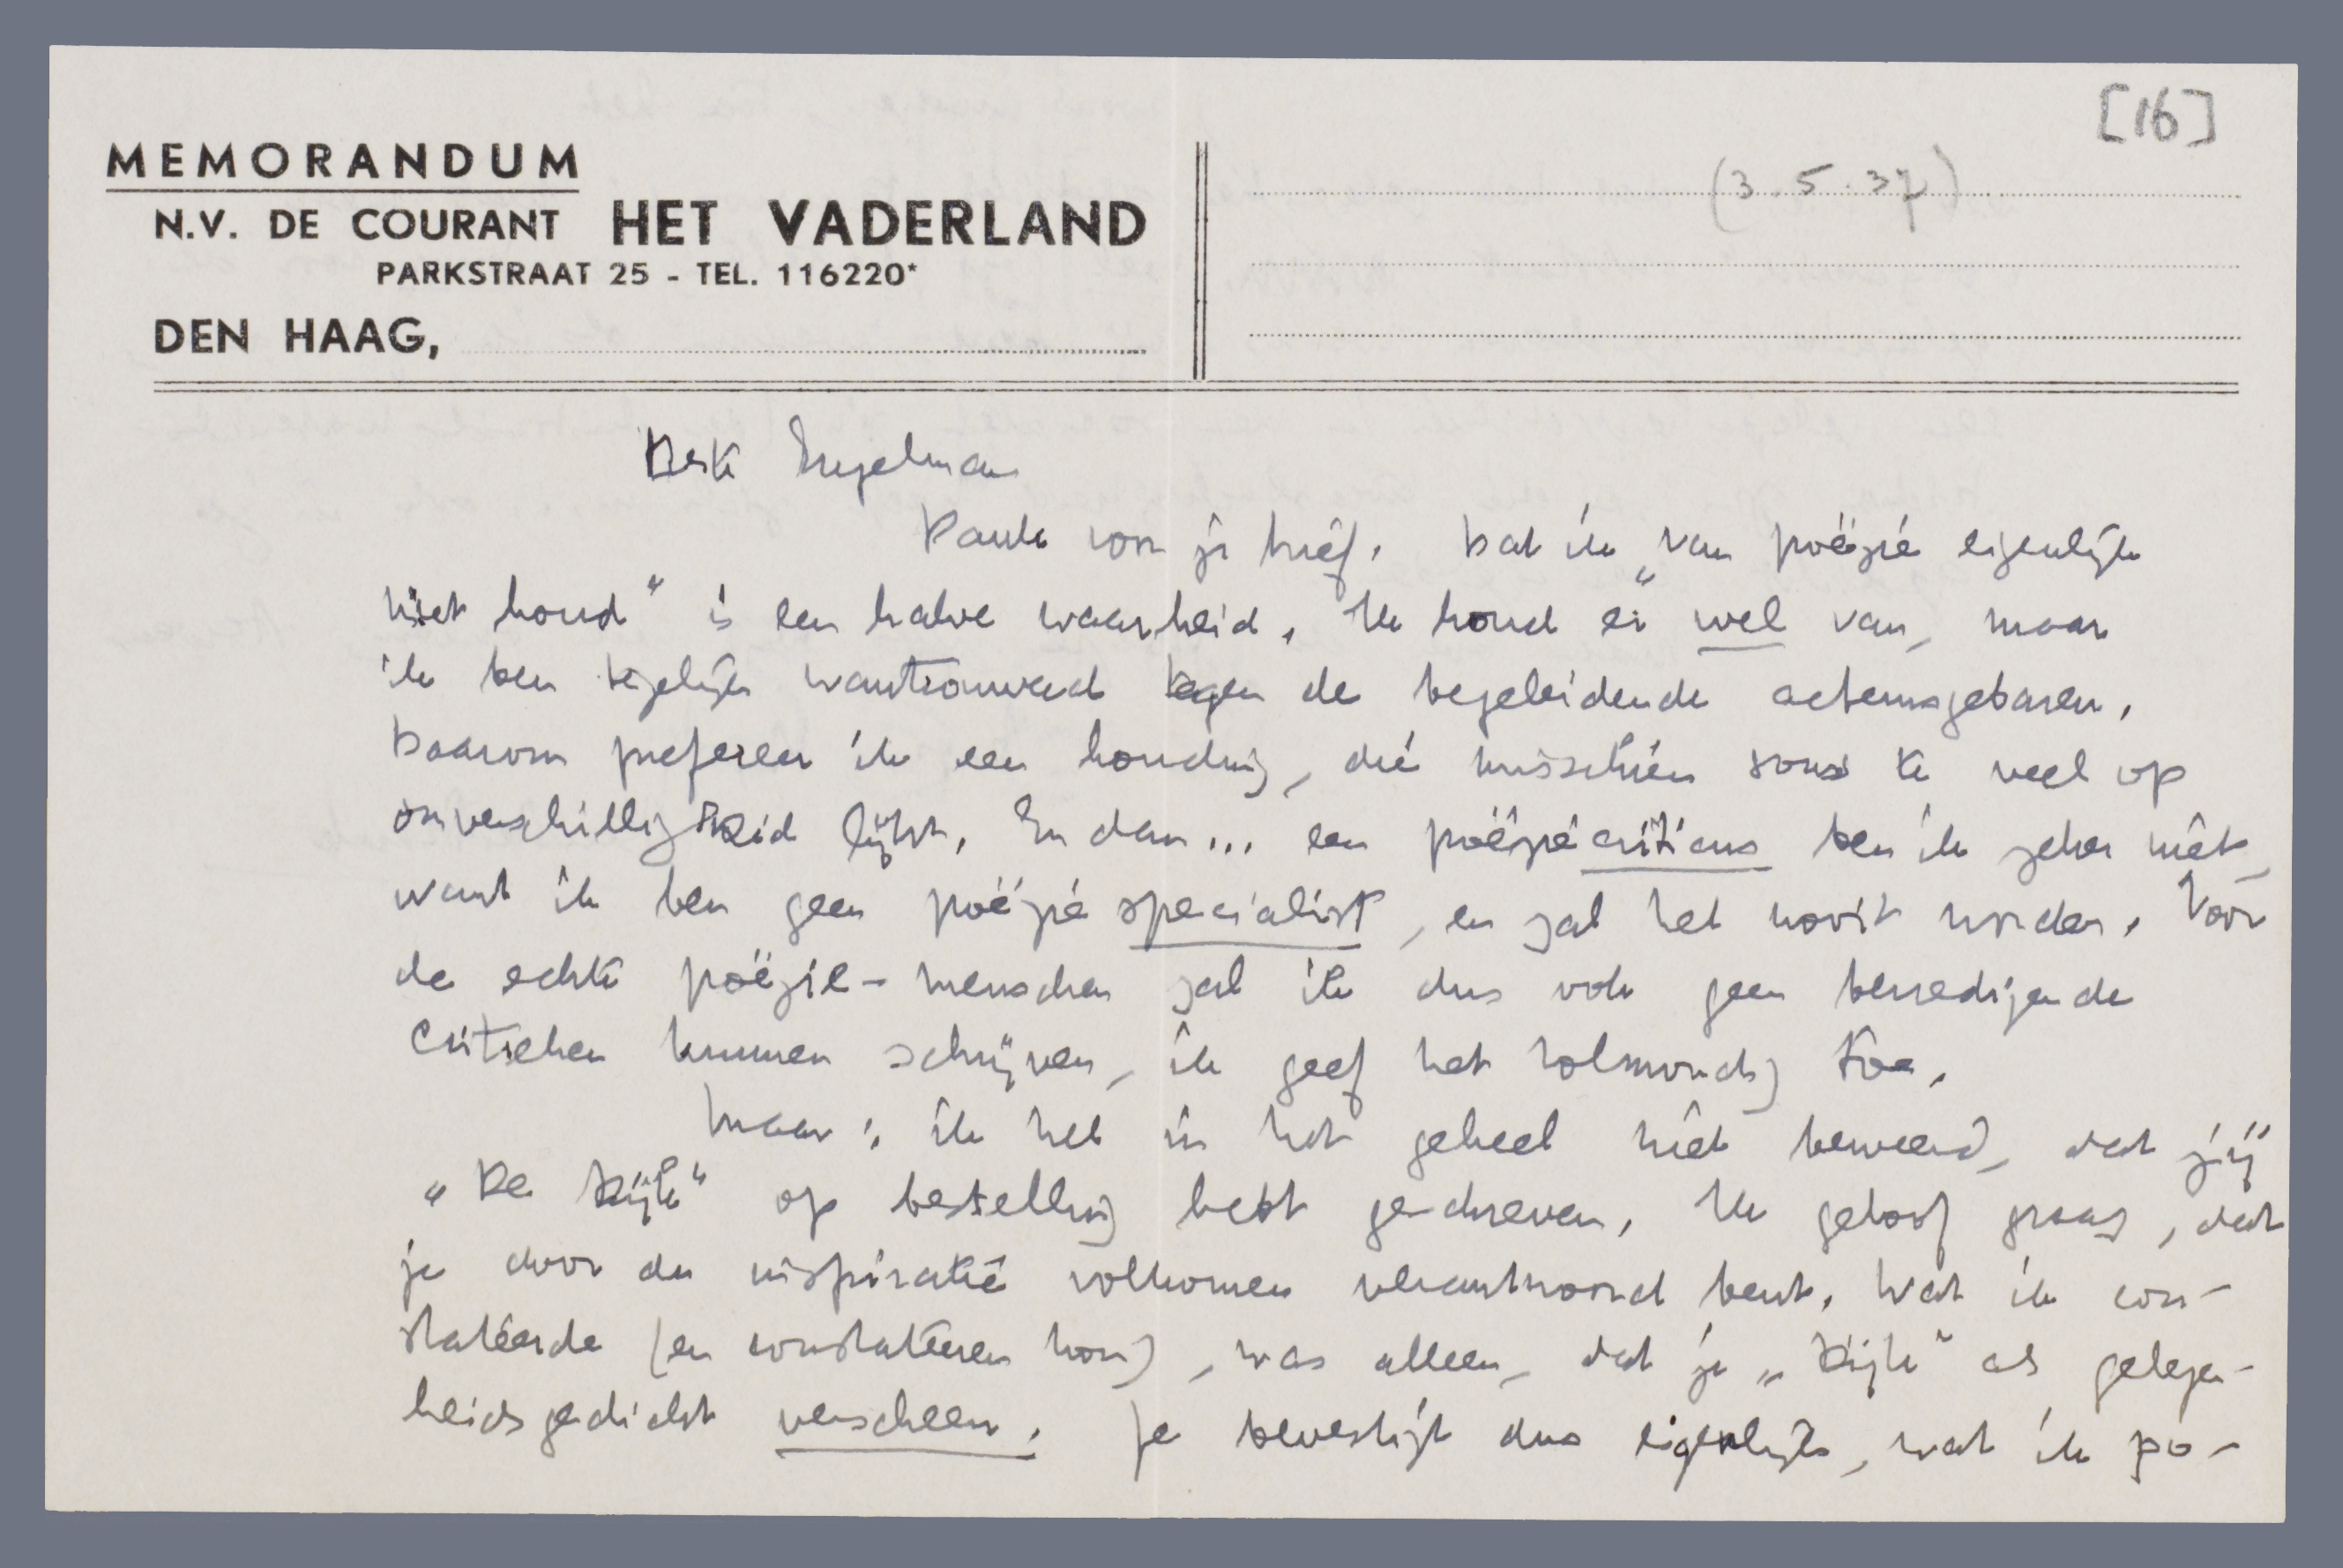 [16]
MEMORANDUM
N.V. DE COURANT HET VADERLAND
PARKSTRAAT 25 - TEL. 116220*
DEN HAAG,
(3.5.37)
Beste Engelman
Dank voor je brief. Dat ik „van poëzie eigenlijk
niet houd" is een halve waarheid. Ik houd er wel van, maar
ik ben tegelijk wantrouwend tegen de begeleidende
Daarom prefereer ik een houding, die misschien soms te veel op
onverschilligheid lijkt. En dan... een poëziecriticus ben ik zeker niet,
want ik ben geen poëziespecialist, en zal het nooit worden. Voor
de echte poëzie-menschen zal ik dus ook geen bevredigende
critieken kunnen schrijven, ik geef het volmondig toe.
Maar: ik heb in het geheel niet beweerd, dat jij
„De Dijk" op bestelling hebt geschreven. Ik geloof graag, dat
je door de inspiratie volkomen verantwoord bent. Wat ik con-
stateerde (en constateeren kon), was alleen, dat je „Dijk" als gelegen-
heidsgedicht verscheen. Je bevestigt dus eigenlijk, wat ik po-